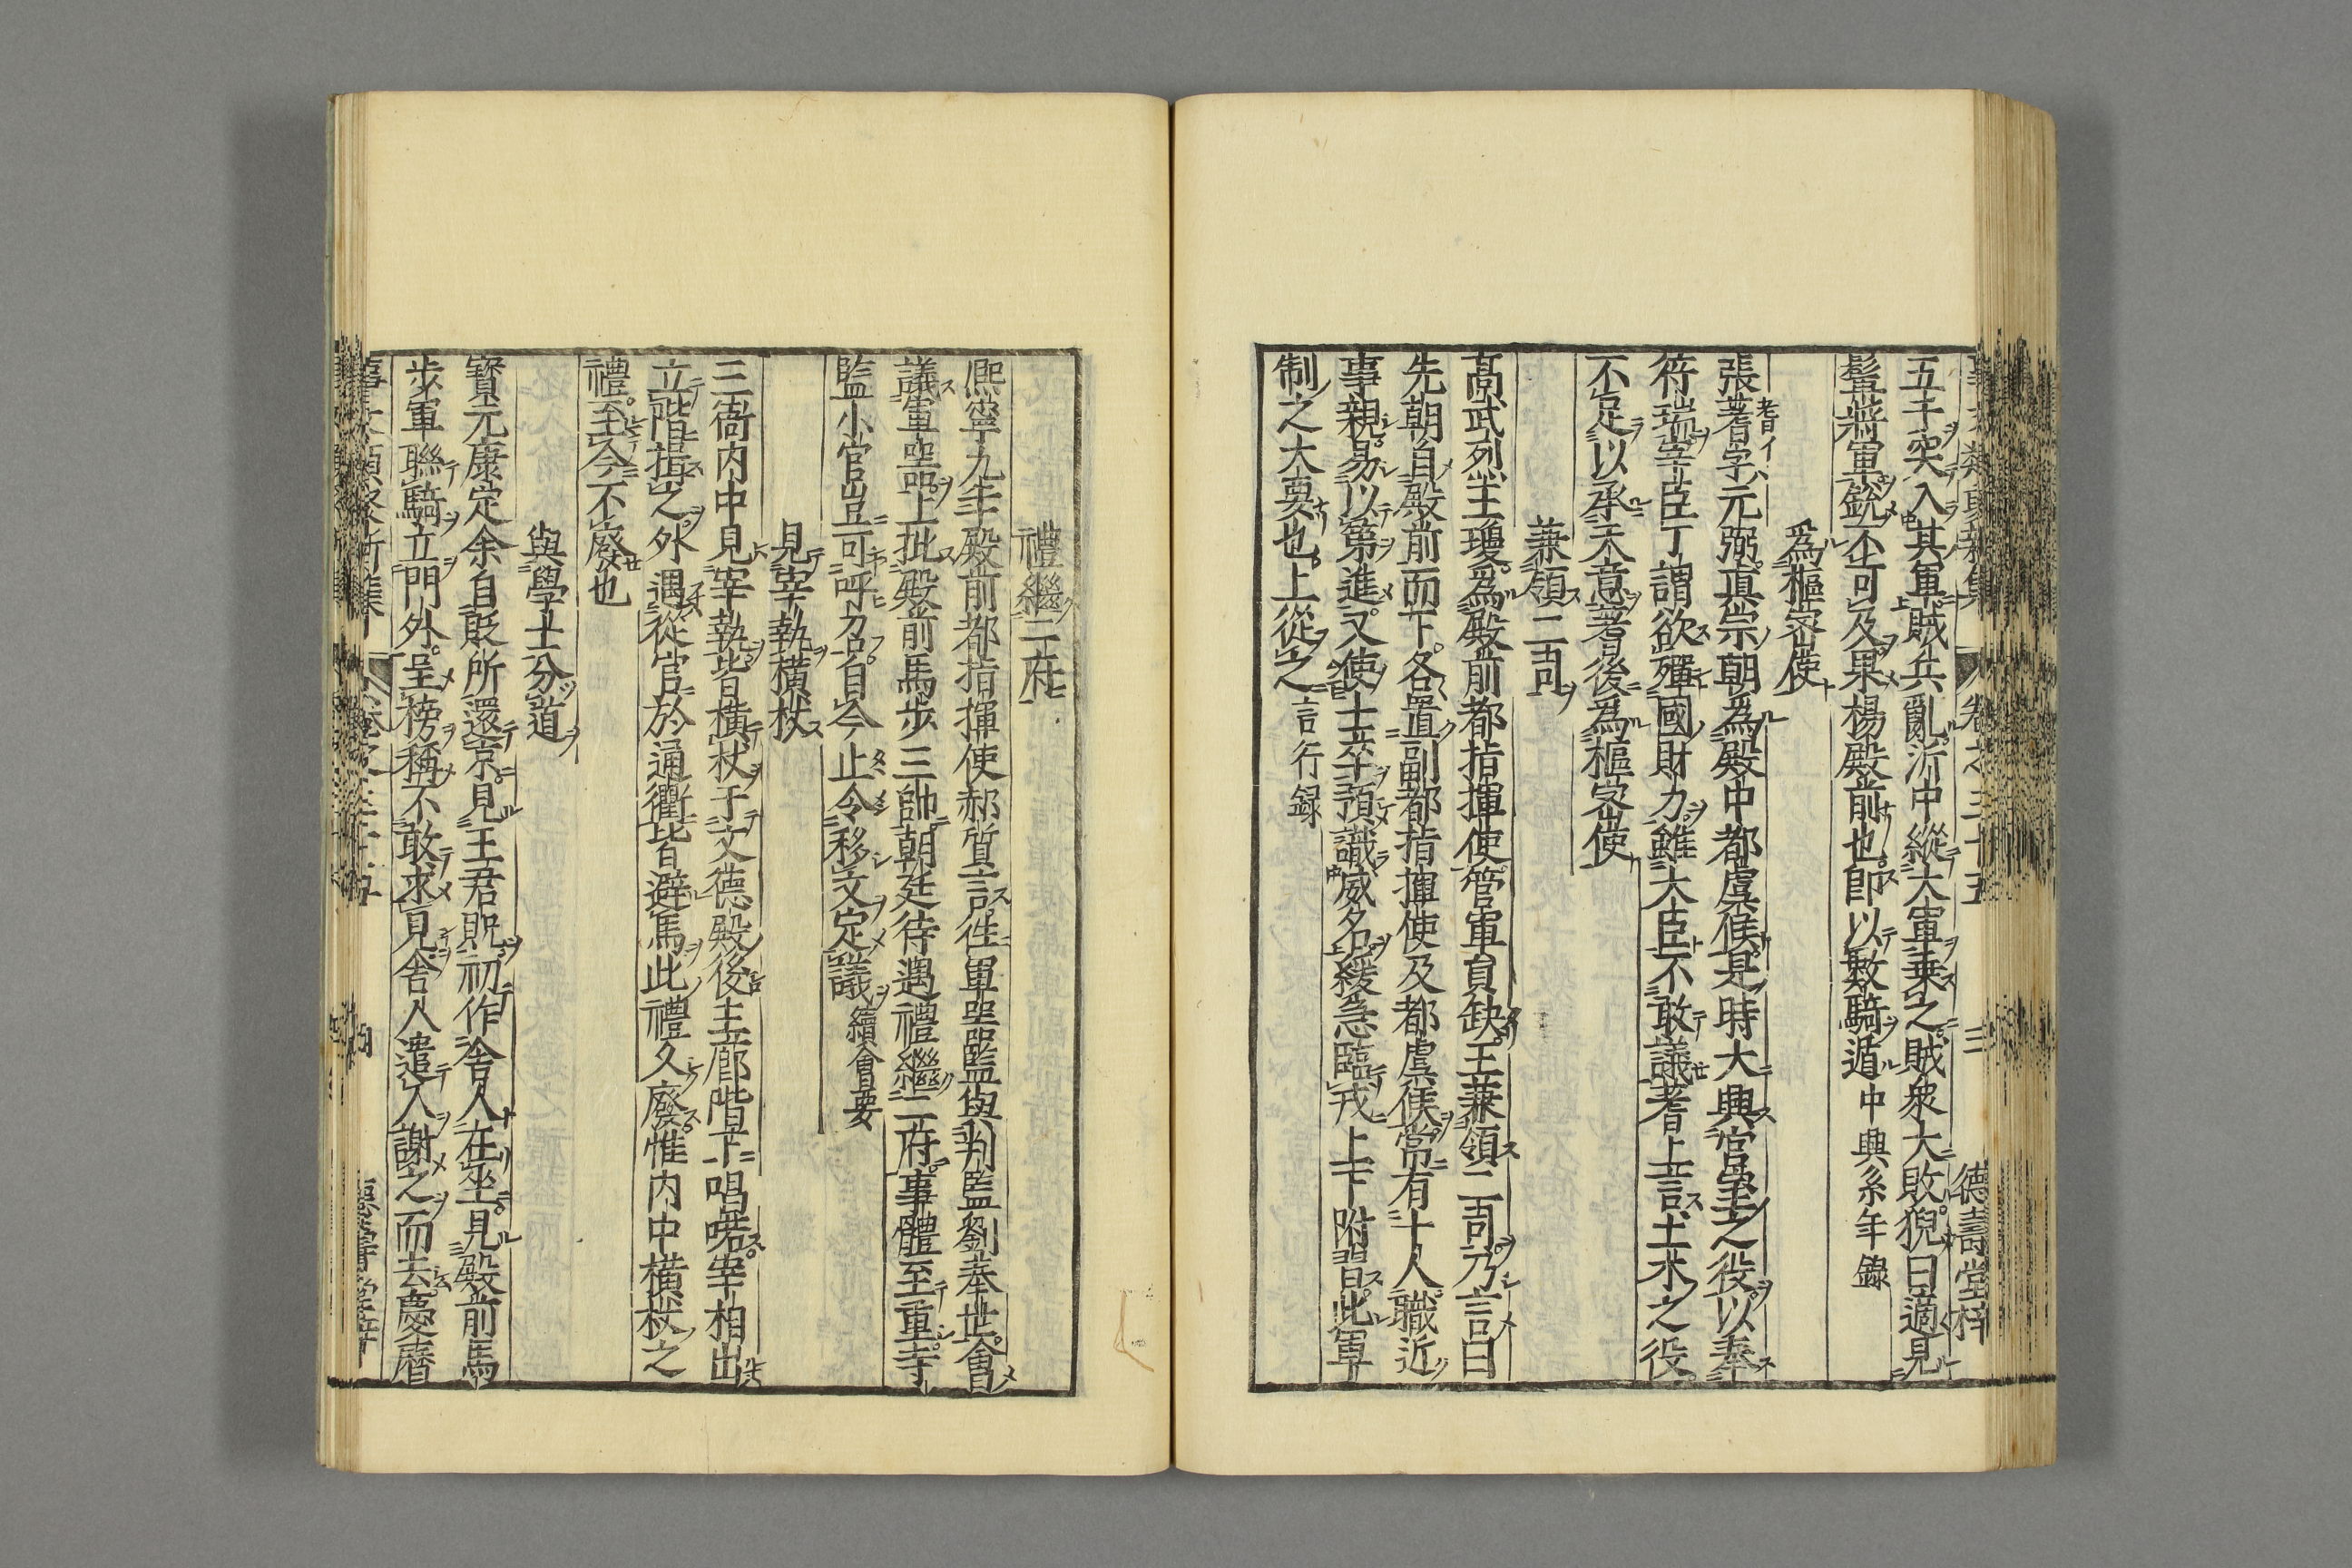 五千突入其軍賊兵亂沂中縱大軍乘之賊衆大敗猊曰適見
髯將軍銳不可及果楊殿前也即以數騎遁中興系年錄
爲樞密使
張耆字元弼真宗朝爲殿中都虞候是時大興宮室之役以奉
符瑞宰臣丁謂欲殫國財力雖大臣不敢議著上言土木之役
不足以承天意著後爲樞密使
兼領二司
高武烈王瓊爲殿前都指揮使管軍員缺王兼領二司乃言曰
先朝自殿前而下各置副都指揮使及都虞候常有十人職近
事親易以第進又使士卒預識威名緩急臨戎上下附習此軍
制之大要也上從之言行録
禮繼二府
熙寧九年殿前都指揮使郝質言徃軍噐監與判監劉奉世會
議軍噐上批殿前馬步三帥朝廷待遇禮繼二府事體至重寺
監小官豈可呼召自今止令移文定議續會要
見宰執橫杖
三衙内中見宰執皆橫杖于文德殿後主廊階下唱喏宰相出
立階揖之外遇從官於通衢皆避馬此禮久廢惟内中橫杖之
禮至今不廢也
與學士分道
寶元康定余自貶所還京見王君貺初作舍人在坐見殿前馬
步軍聯騎立門外呈榜稱不敢求見舍人遣人謝之而去慶曆